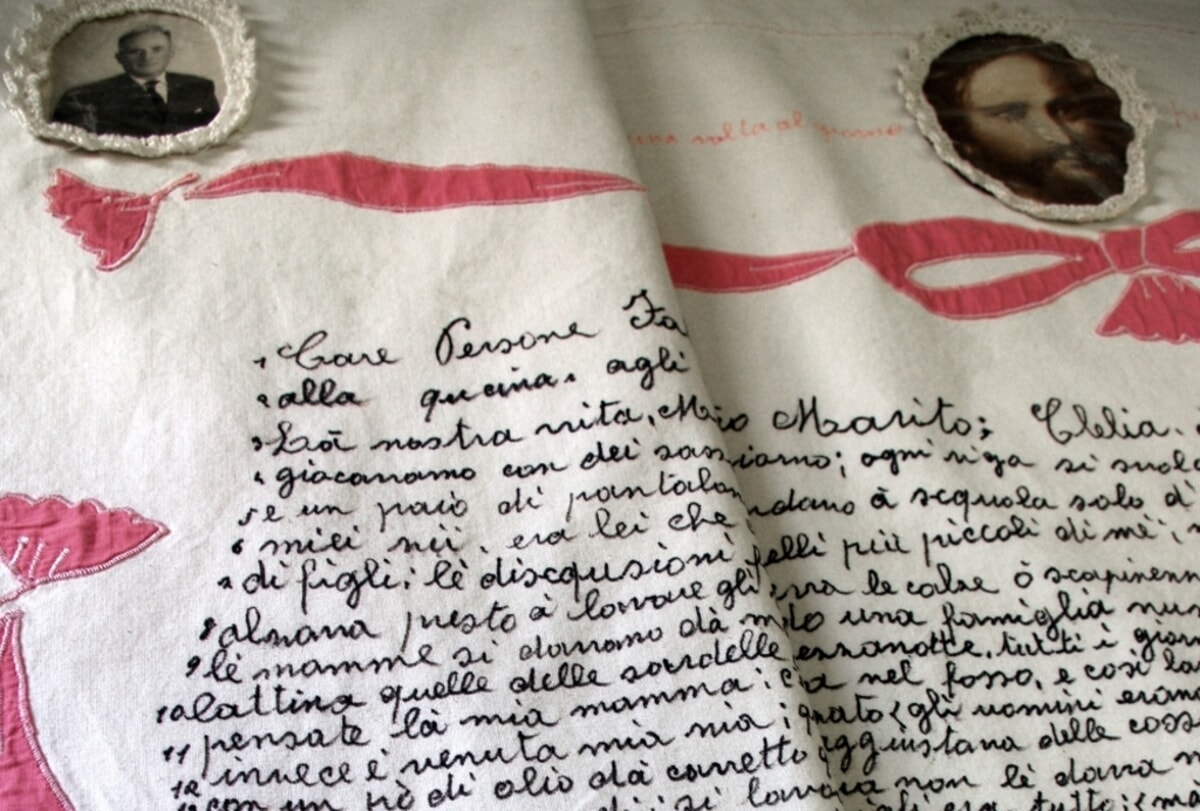 una volta al giorno
1 Care Persone Fa
2 alla qucina. agli
3 Là nostra vita, Mio Marito; Clelia.
4 giacavamo con dei sassiamo; ogni riga si
5 e un paio di pantalon ndano à sequola solo di
6 miei nii. era lei che telli più piccoli di mè;
7 di figli; lè discqusioni le calse ò
8 alzava presto à lavare gli una famiglia nu
9 lè mamme si davano dà ezzanotte, tutti i gior
10 lattina quelle delle sardelle nel fosso, e così
11 pensate là mia mamma: gli uomini eran
12 invece è venuta mia nia aggiustava delle
con un pò di olio dà carretto lavava non lè dava
si